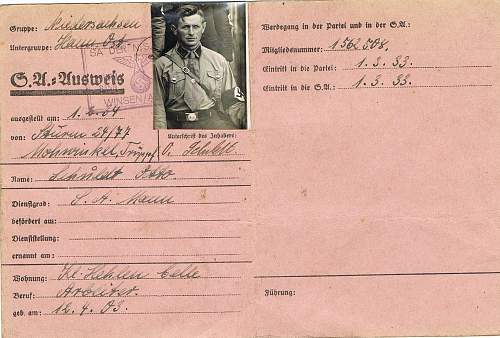 Gruppe: Niedersachsen
Untergruppe: Hann. Ost.
SA DER NS
WINSEN/A
S.A.-Ausweis
ausgestellt am: 1.6.34
von: Sturm 24/77
Unterschrift des Inhabers:
O. Schmidt
Name: Schmidt Otto.
Dienstgrad: S. A. Mann
befördert am:
Dienststellung:
ernannt am:
Wohnung: Kl. Hehlen Celle
Beruf: Arbeiter.
geb. am: 12.4.03.
Werdegang in der Partei und in der S.A.:
Mitgliedsnummer: 1562508.
Eintritt in die Partei: 1.3.33.
Eintritt in die S.A.: 1.3.33.
Führung: